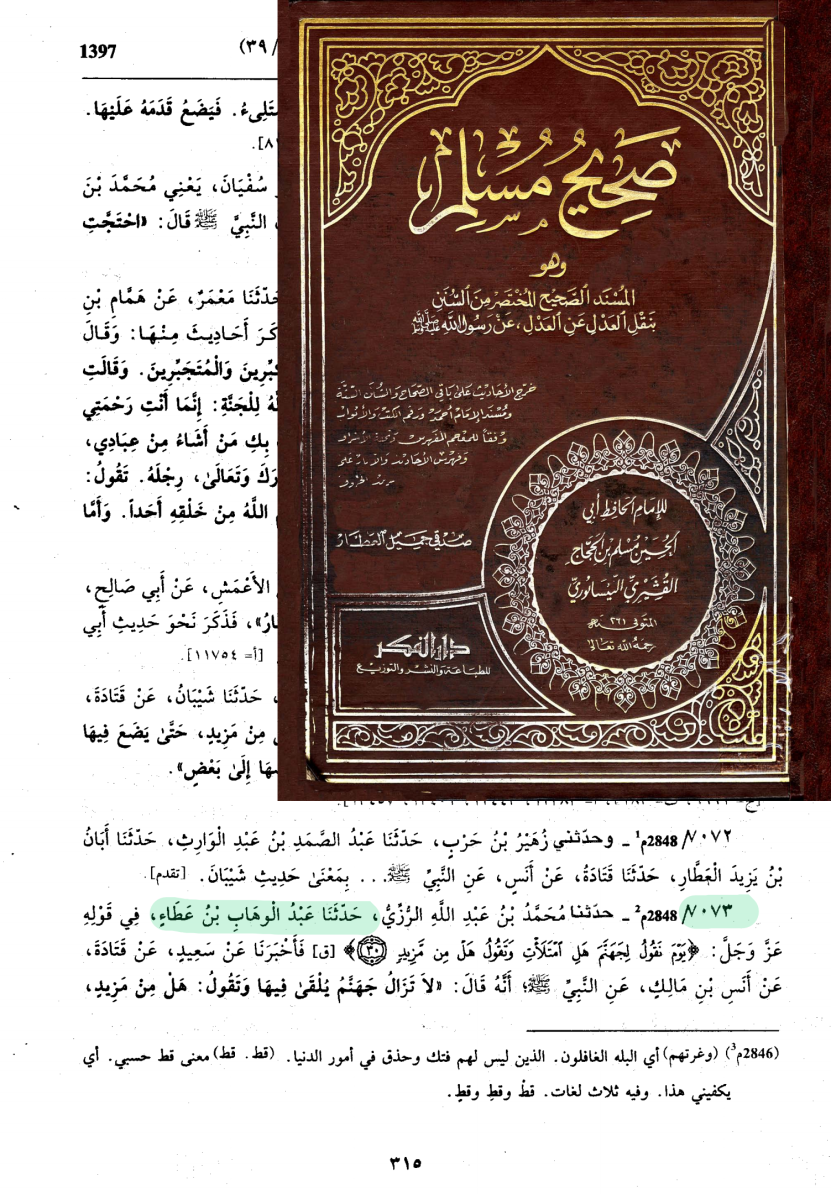 1397
/ ٣٩)
ـتَلِىءُ. فَيَضَعُ قَدَمَهُ عَلَيْهَا.
سُفْيَانَ، يَعْنِي مُحَمَّدَ بْنَ
النَّبِيِّ ﷺ قَالَ: «احْتَجَّتِ
حَدَّثَنَا مَعْمَرٌ، عَنْ هَمَّامِ بْنِ
أَحَادِيثَ مِنْهَا: وَقَالَ
وَالْمُتَجَبِّرِينَ. وَقَالَتِ
لِلْجَنَّةِ: إِنَّمَا أَنْتِ رَحْمَتِي
بِكِ مَنْ أَشَاءُ مِنْ عِبَادِي،
وَتَعَالَىٰ، رِجْلَهُ. تَقُولُ:
اللَّهُ مِنْ خَلْقِهِ أَحَداً. وَأَمَّا
الأَعْمَشِ، عَنْ أَبِي صَالِحٍ،
فَذَكَرَ نَحْوَ حَدِيثِ أَبِي
[أ= ١١٧٥٤].
حَدَّثَنَا شَيْبَانُ، عَنْ قَتَادَةَ،
مِنْ مَزِيدٍ، حَتَّى يَضَعَ فِيهَا
إِلَىٰ بَعْضٍ».
صَحِيحُ مُسْلِم
وهو
المُسْنَد الصَّحِيح المُخْتَصَر مِنَ السُّنَنِ
بِنَقْلِ العَدْلِ عَنِ العَدْلِ، عَنْ رَسُولِ اللَّهِ ﷺ
خرج الأحاديث على باقي الصحاح والسنن الستة
ومسند الإمام أحمد ورقم الكتب والأبواب
وفقاً للمعجم المفهرس وتحفة الأشراف
صدقي جميل العطار
للإمام الحافظ أبي
الحسين مسلم بن الحجاج
القشيري النيسابوري
المتوفى ٢٦١ هـ
رحمه الله تعالى
دار الفكر
للطباعة والنشر والتوزيع
٧٠٧٢/ 2848م¹ ـ وحدّثني زُهَيْرُ بْنُ حَرْبٍ، حَدَّثَنَا عَبْدُ الصَّمَدِ بْنُ عَبْدِ الْوَارِثِ، حَدَّثَنَا أَبَانُ
بْنُ يَزِيدَ الْعَطَّارِ، حَدَّثَنَا قَتَادَةُ، عَنْ أَنَسٍ، عَنِ النَّبِيِّ ﷺ... بِمَعْنَى حَدِيثِ شَيْبَانَ. [تقدم].
٧٠٧٣/ 2848م² ـ حدّثنا مُحَمَّدُ بْنُ عَبْدِ اللَّهِ الرُّزِّيُّ، حَدَّثَنَا عَبْدُ الْوَهَابِ بْنُ عَطَاءٍ، فِي قَوْلِهِ
عَزَّ وَجَلَّ: ﴿يَوْمَ نَقُولُ لِجَهَنَّمَ هَلِ امْتَلَأْتِ وَتَقُولُ هَلْ مِن مَّزِيدٍ ٣٠﴾ [ق] فَأَخْبَرَنَا عَنْ سَعِيدٍ، عَنْ قَتَادَةَ،
عَنْ أَنَسِ بْنِ مَالِكٍ، عَنِ النَّبِيِّ ﷺ؛ أَنَّهُ قَالَ: «لاَ تَزَالُ جَهَنَّمُ يُلْقَىٰ فِيهَا وَتَقُولُ: هَلْ مِنْ مَزِيدٍ،
(2846م³) (وغرتهم) أي البله الغافلون. الذين ليس لهم فتك وحذق في أمور الدنيا. (قط. قط) معنى قط حسبي. أي
يكفيني هذا. وفيه ثلاث لغات. قطْ وقطِ وقطٍ.
٣١٥